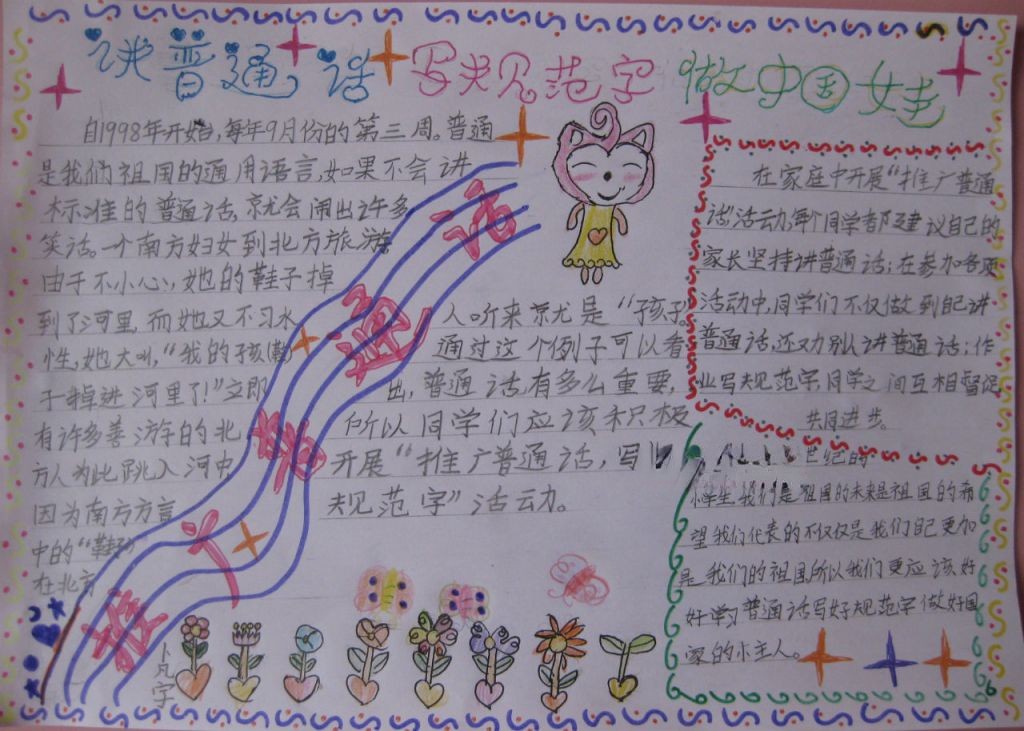 讲普通话 写规范字 做中国娃
自1998年开始,每年9月份的第三周。普通
是我们祖国的通用语言,如果不会讲
标准的普通话,就会闹出许多
笑话。一个南方妇女到北方旅游
由于不小心,她的鞋子掉
到了河里,而她又不习水
性,她大叫,“我的孩(鞋)
子掉进河里了!”立即
有许多善游的北
方人为此跳入河中
因为南方方言
中的“鞋子”
在北方
人听来就是“孩子。
通过这个例子可以看
出,普通话,有多么重要,
所以同学们应该积极
开展“推广普通话,写
规范字”活动。
推广普通话
在家庭中开展“推广普通
话”活动,每个同学都建议自己的
家长坚持讲普通话;在参加各项
活动中,同学们不仅做到自己讲
普通话,还劝别人讲普通话;作
业写规范字,同学之间互相督促
共同进步。
世纪的
小学生,我们是祖国的未来是祖国的希
望我们代表的不仅仅是我们自己更加
是我们的祖国,所以我们更应该好
好学习普通话写好规范字做好国
家的小主人。